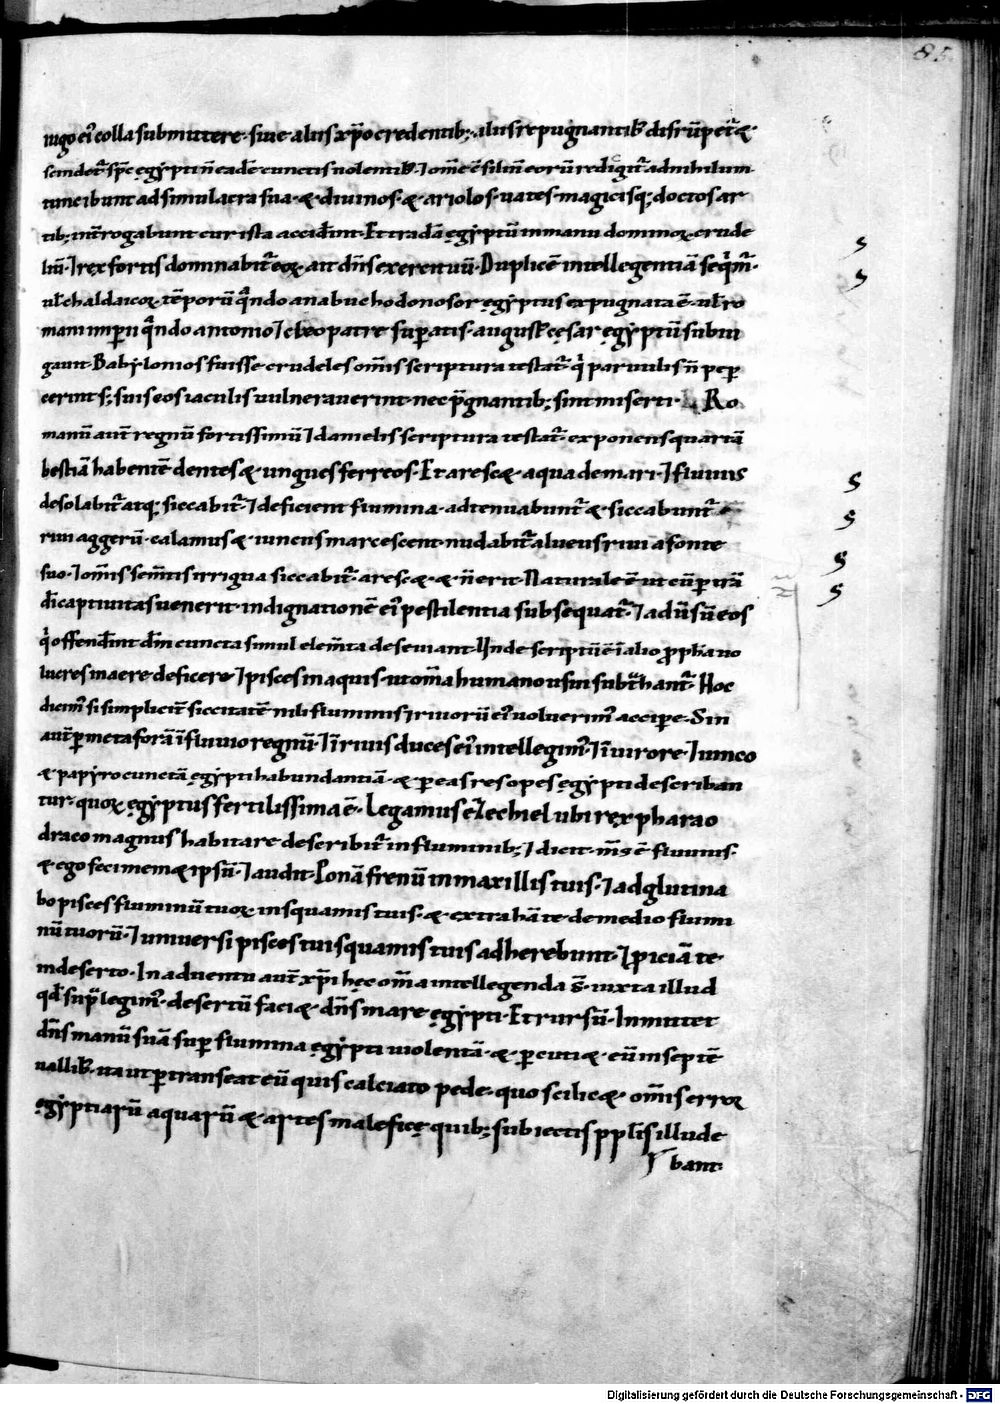 85
iugo ei᾽ colla submittere· siue aliis xp̄o credentib; aliis repugnantib᷒ disrūpet᷒ &
scindet᷒ sp̄c ęgẏpti n̄ eadē cunctis uolentib᷒· ⁊ om̄e c̄siliū eorū redigit᷒ ad nihilum
tunc ibunt ad simulacra sua· & diuinos· & ariolos· uates· magicisq; doctos ar
tib; int᷒rogabunt cur ista accider̄int· Et tradā ęgẏptū in manu dominoꝝ crude
liū· ⁊ rex fortis dominabit᷒ eoꝝ ait dn̄s exercituū· Duplicē intellegentiā seq̄m᷒·
ut̄ chaldaicoꝝ tēporū q̄ndo a nabuchodonosor ęgẏptus expugnata ē· ut̄ ro
mani imp̄ii q̄ndo antonio ⁊ cleopatre sup̄atis· august᷒ cęsar ęgẏptū subiu
gauit· Babẏlonios fuisse crudeles om̄is scriptura testat᷒· q̇ paruulis n̄ pep̄
cerint s; suis eos iaculis uulnerauerint· nec p̄gnantib; sint miserti· Ro
manū aut̄ regnū fortissimū ⁊ danielis scriptura testat᷒· exponens quartā
bestiā habentē dentes & ungues ferreos· Et aresc& aqua de mari· ⁊ fluuius
desolabit᷒ atq; siccabit᷒· ⁊ deficient flumina· adtenuabunt᷒ & siccabunt᷒
riui aggerū· calamus & iuncus marcescent· nudabit᷒ alueus riui a fonte
suo· ⁊ om̄is sem̄tis irrigua siccabit᷒· aresc& & n̄ erit· Naturale ē ut cū p̄ t̄rā
d̄i captiuitas uenerit· indignationē ei᾽ pestilentia subsequat᷒· ⁊ aduersū eos
q̇ offender̄int dm̄ cuncta simul elem̄ta deseuiant· Unde scriptū ē ī alio prop̄ha uo
lucres in aere deficere ⁊ pisces in aquis· ut om̄a humano usui subt᷒hant᷒· Hoc
dicim᷒ si simplicit᷒ siccitatē nili fluminis ⁊ riuorū ei᾽ uoluerim᷒ accipe᷒· Sin
aut̄ p̄ metaforā ī fluuio regnū· ⁊ ī riuis duces ei᾽ intellegim᷒· ⁊ ī uirore· ⁊ iunco
& papẏro cunctā ęgẏpti habundantiā· & p̄ eas res opes ęgẏpti describan
tur· quoꝝ ęgẏptus fertilissima ē· Legamus ezechiel ubi rex pharao
draco magnus habitare describit᷒ in fluminib; ⁊ dicit· m̄s ē fluuius·
& ego feci memet ipsū· ⁊ audit· Ponā frenū in maxillis tuis· ⁊ adglutina
bo pisces fluminū tuoꝝ in squamis tuis· & extrahā te de medio flumi
nū tuorū· ⁊ uniuersi pisces tui squamis tuis adherebunt· ⁊ proiciā te
in deserto· In aduentu aut̄ xp̄i hęc om̄a intellegenda s̄· iuxta illud
qd̄ sup̄ legim᷒· desertū faci& dn̄s mare ęgẏpti· Et rursū· Inmittet
dn̄s manū suā sup̄ flumina ęgẏpti uiolentā· & p̄cuti& eū in septē
uallib᷒· ita ut p̄transeat eū quis calciato pede· quo scilic& om̄is error
ęgẏptiarū aquarū & artes maleficę quib; subiectis pplīs illude
bant·
Digitalisierung gefördert durch die Deutsche Forschungsgemeinschaft · DFG